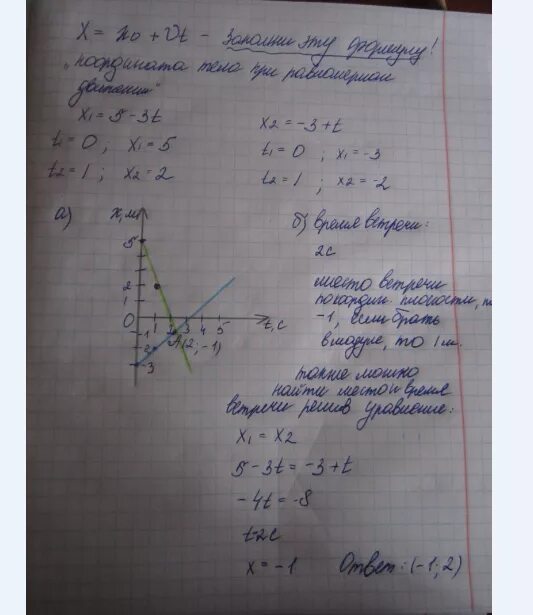 X = x₀ + υt – Запомни эту формулу!
„координата тела при равномерном
движении"
x₁ = 5 - 3t
t₁ = 0 ; x₁ = 5
t₂ = 1 ; x₂ = 2
x₂ = -3 + t
t₁ = 0 ; x₁ = -3
t₂ = 1 ; x₂ = -2
а)
x, м
5
2
1
0
1 2 3 4 5
t, с
-1
-2
-3
A(2; -1)
б) время встречи:
2с
место встречи
по коорди. плоскости,
-1, если брать
в модуле, то 1 м.
также можно
найти место и время
встречи решив уравнение:
x₁ = x₂
5 - 3t = -3 + t
-4t = -8
t=2c
x = -1
Ответ: (-1; 2)